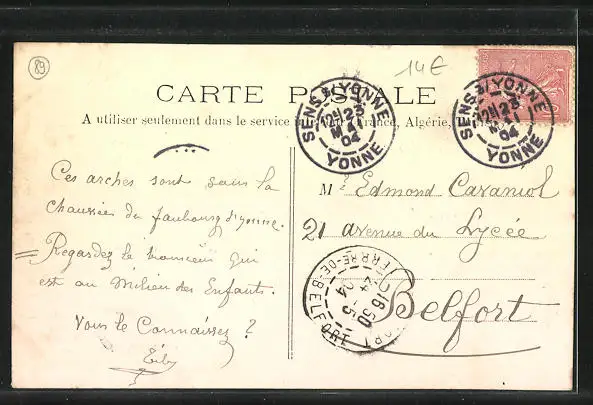 89
14€
CARTE POSTALE
A utiliser seulement dans le service France, Algérie,
SENS S/ YONNE
23
MAI
04
YONNE
SENS S/ YONNE
23
MAI
04
YONNE
Ces arches sont sous la
chaussée du faubourg d'yonne.
Regardez le monsieur qui
est au Milieu des Enfants.
Vous le Connaissez ?
M Edmond Caramol
21 avenue du Lycée
Belfort
BELFORT
TERRE-DE-BELFORT
16 50
24 - 5
04